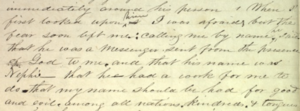 immediately around this person. When I
first looked upon him I was afraid, but the
fear soon left me: calling me by name
that he was a Messenger sent from the presence
of God to me, and that his name was
Nephi that he had a work for me to
do, that my name should be had for good
and evil, among all nations, kindreds, &